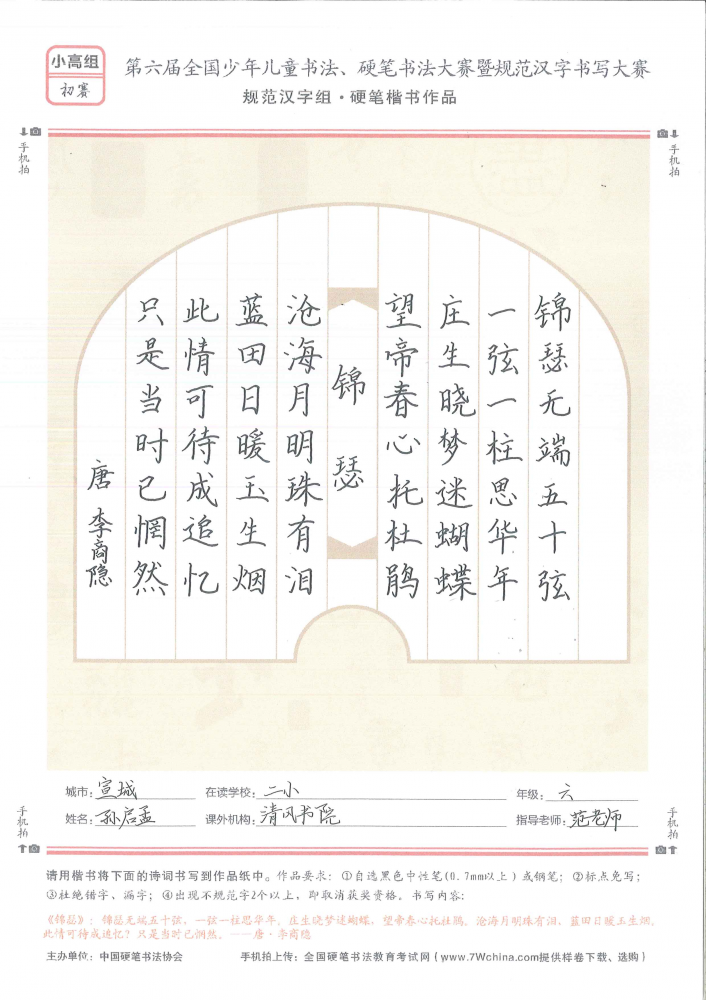 小高组
初赛
第六届全国少年儿童书法、硬笔书法大赛暨规范汉字书写大赛
规范汉字组·硬笔楷书作品
手机拍
手机拍
锦瑟无端五十弦
一弦一柱思华年
庄生晓梦迷蝴蝶
望帝春心托杜鹃
锦瑟
沧海月明珠有泪
蓝田日暖玉生烟
此情可待成追忆
只是当时已惘然
唐 李商隐
城市：宣城 在读学校：二小 年级：六
姓名：孙启孟 课外机构：清风书院 指导老师：范老师
手机拍
手机拍
请用楷书将下面的诗词书写到作品纸中。作品要求：①自选黑色中性笔(0.7mm以上)或钢笔；②标点免写；
③杜绝错字、漏字；④出现不规范字2个以上，即取消获奖资格。书写内容：
《锦瑟》：锦瑟无端五十弦，一弦一柱思华年。庄生晓梦迷蝴蝶，望帝春心托杜鹃。沧海月明珠有泪，蓝田日暖玉生烟。
此情可待成追忆？只是当时已惘然。——唐·李商隐
主办单位：中国硬笔书法协会 手机拍上传：全国硬笔书法教育考试网（www.7Wchina.com提供样卷下载、选购）